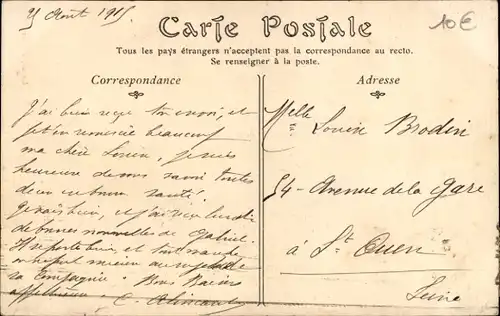 Août 1915
10€
Carte Postale
Tous les pays étrangers n'acceptent pas la correspondance au recto.
Se renseigner à la poste.
Correspondance
Adresse
J'ai bien reçu ton envoi, et
t'en remercie beaucoup
ma chère Louise, je suis
heureuse de vous savoir toutes
deux en bonne santé.
et j'ai
de bonnes nouvelles de Gabriel.
Il se porte bien et
sa Compagnie. Bons Baisers
Melle
Louise Brodin
54 - Avenue de la Gare
à St. Ouen
Seine